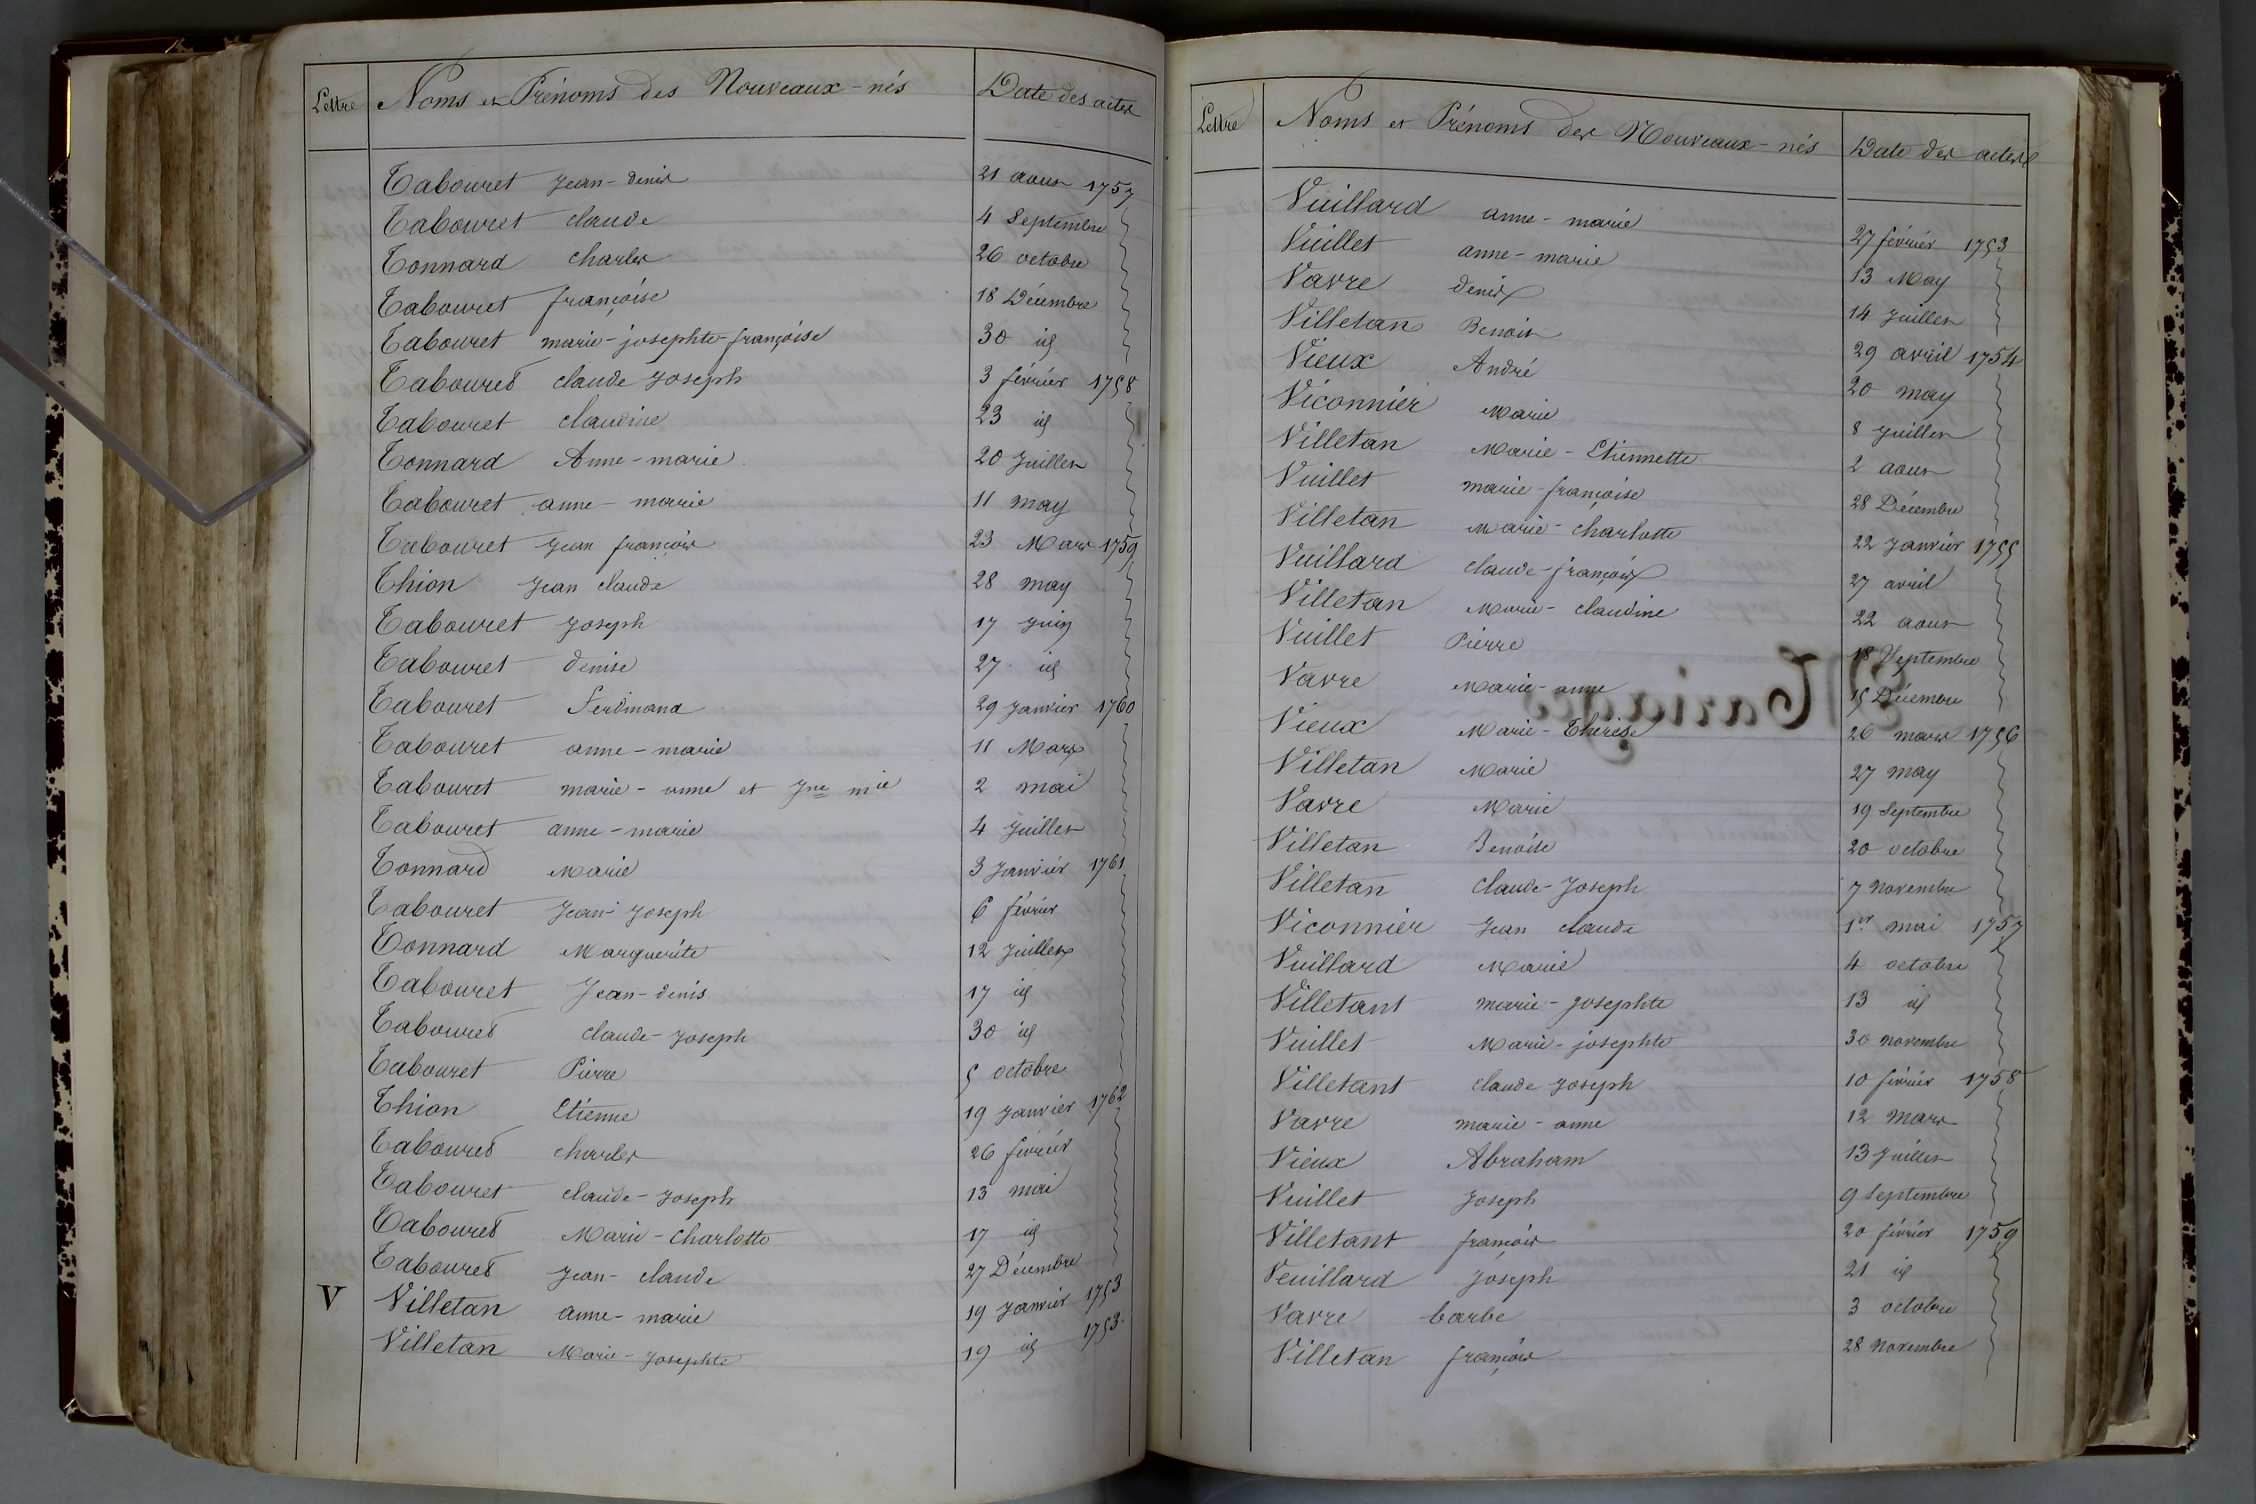 Lettre Noms et Prénoms des Nouveaux-nés Date des actes
Tabouret Jean-denis 21 aout 1757
Tabouret claude 4 Septembre
Tonnard charles 26 octobre
Tabouret françoise 18 Décembre
Tabouret marie-josephte-françoise 30 id
Tabouret claude Joseph 3 février 1758
Tabouret claudine 23 id
Tonnard Anne-marie 20 Juillet
Tabouret anne-marie 11 may
Tabouret Jean françois 23 Mars 1759
Thion Jean claude 28 may
Tabouret Joseph 17 Juin
Tabouret denise 27 id
Tabouret Ferdinand 29 Janvier 1760
Tabouret anne-marie 11 Mars
Tabouret marie-anne et Jne mie 2 mai
Tabouret anne-marie 4 Juillet
Tonnard Marie 3 Janvier 1761
Tabouret Jean-Joseph 6 février
Tonnard Marguerite 12 Juillet
Tabouret Jean-denis 17 id
Tabouret claude-Joseph 30 id
Tabouret Pierre 5 octobre
Thion Etienne 19 Janvier 1762
Tabouret charles 26 février
Tabouret claude-Joseph 13 mai
Tabouret Marie-Charlotte 17 id
Tabouret Jean-claude 27 Décembre
V Villetan anne-marie 19 Janvier 1753
Villetan Marie-Josephte 19 id 1753
Lettre Noms et Prénoms des Nouveaux-nés Date des actes
Vuillard anne-marie 27 février 1753
Vuillet anne-marie 13 May
Vavre denis 14 Juillet
Villetan Benoit 29 avril 1754
Vieux André 20 may
Viconnier Marie 8 Juillet
Villetan Marie-Etiennette 2 aout
Vuillet marie-françoise 28 Décembre
Villetan Marie-charlotte 22 Janvier 1755
Vuillard claude-françois 27 avril
Villetan Marie-claudine 22 aout
Vuillet Pierre 18 Septembre
Vavre Marie-anne 15 Décembre
Vieux Marie-Thérèse 26 mars 1756
Villetan Marie 27 may
Vavre Marie 19 Septembre
Villetan Benoite 20 octobre
Villetan Claude-Joseph 7 Novembre
Viconnier Jean claude 1er mai 1757
Vuillard Marie 4 octobre
Villetant marie-josephte 13 id
Vuillet Marie-josephte 30 novembre
Villetant claude Joseph 10 février 1758
Vavre marie-anne 12 Mars
Vieux Abraham 13 Juillet
Vuillet Joseph 9 Septembre
Villetant françois 20 février 1759
Veuillard Joseph 21 id
Vavre barbe 3 octobre
Villetan françois 28 Novembre
Mariages